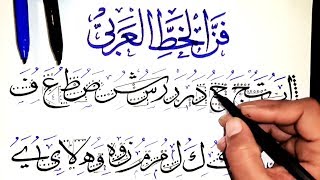 فن الخط العربي
ا ب ج خ د ر ر س ش ص ط ع ف
ك ل م م و ه لا ي